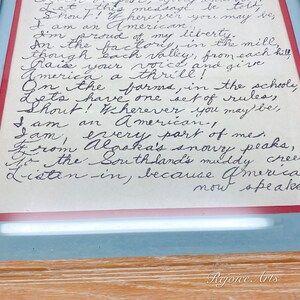 Let this message be told,
Shout! Wherever you may be,
I am an American,
I'm proud of my liberty.
In the factory, in the mill
though each valley, from each hill,
Raise your voice, and give
America a thrill!
On the farms, in the schools
Lets have one set of rules,
Shout! Wherever you may be,
I am an American,
I am, every part of me.
From Alaska's snowy peaks,
To the Southland's muddy cree
Listen in, because America
now speaks
Rejoice Arts